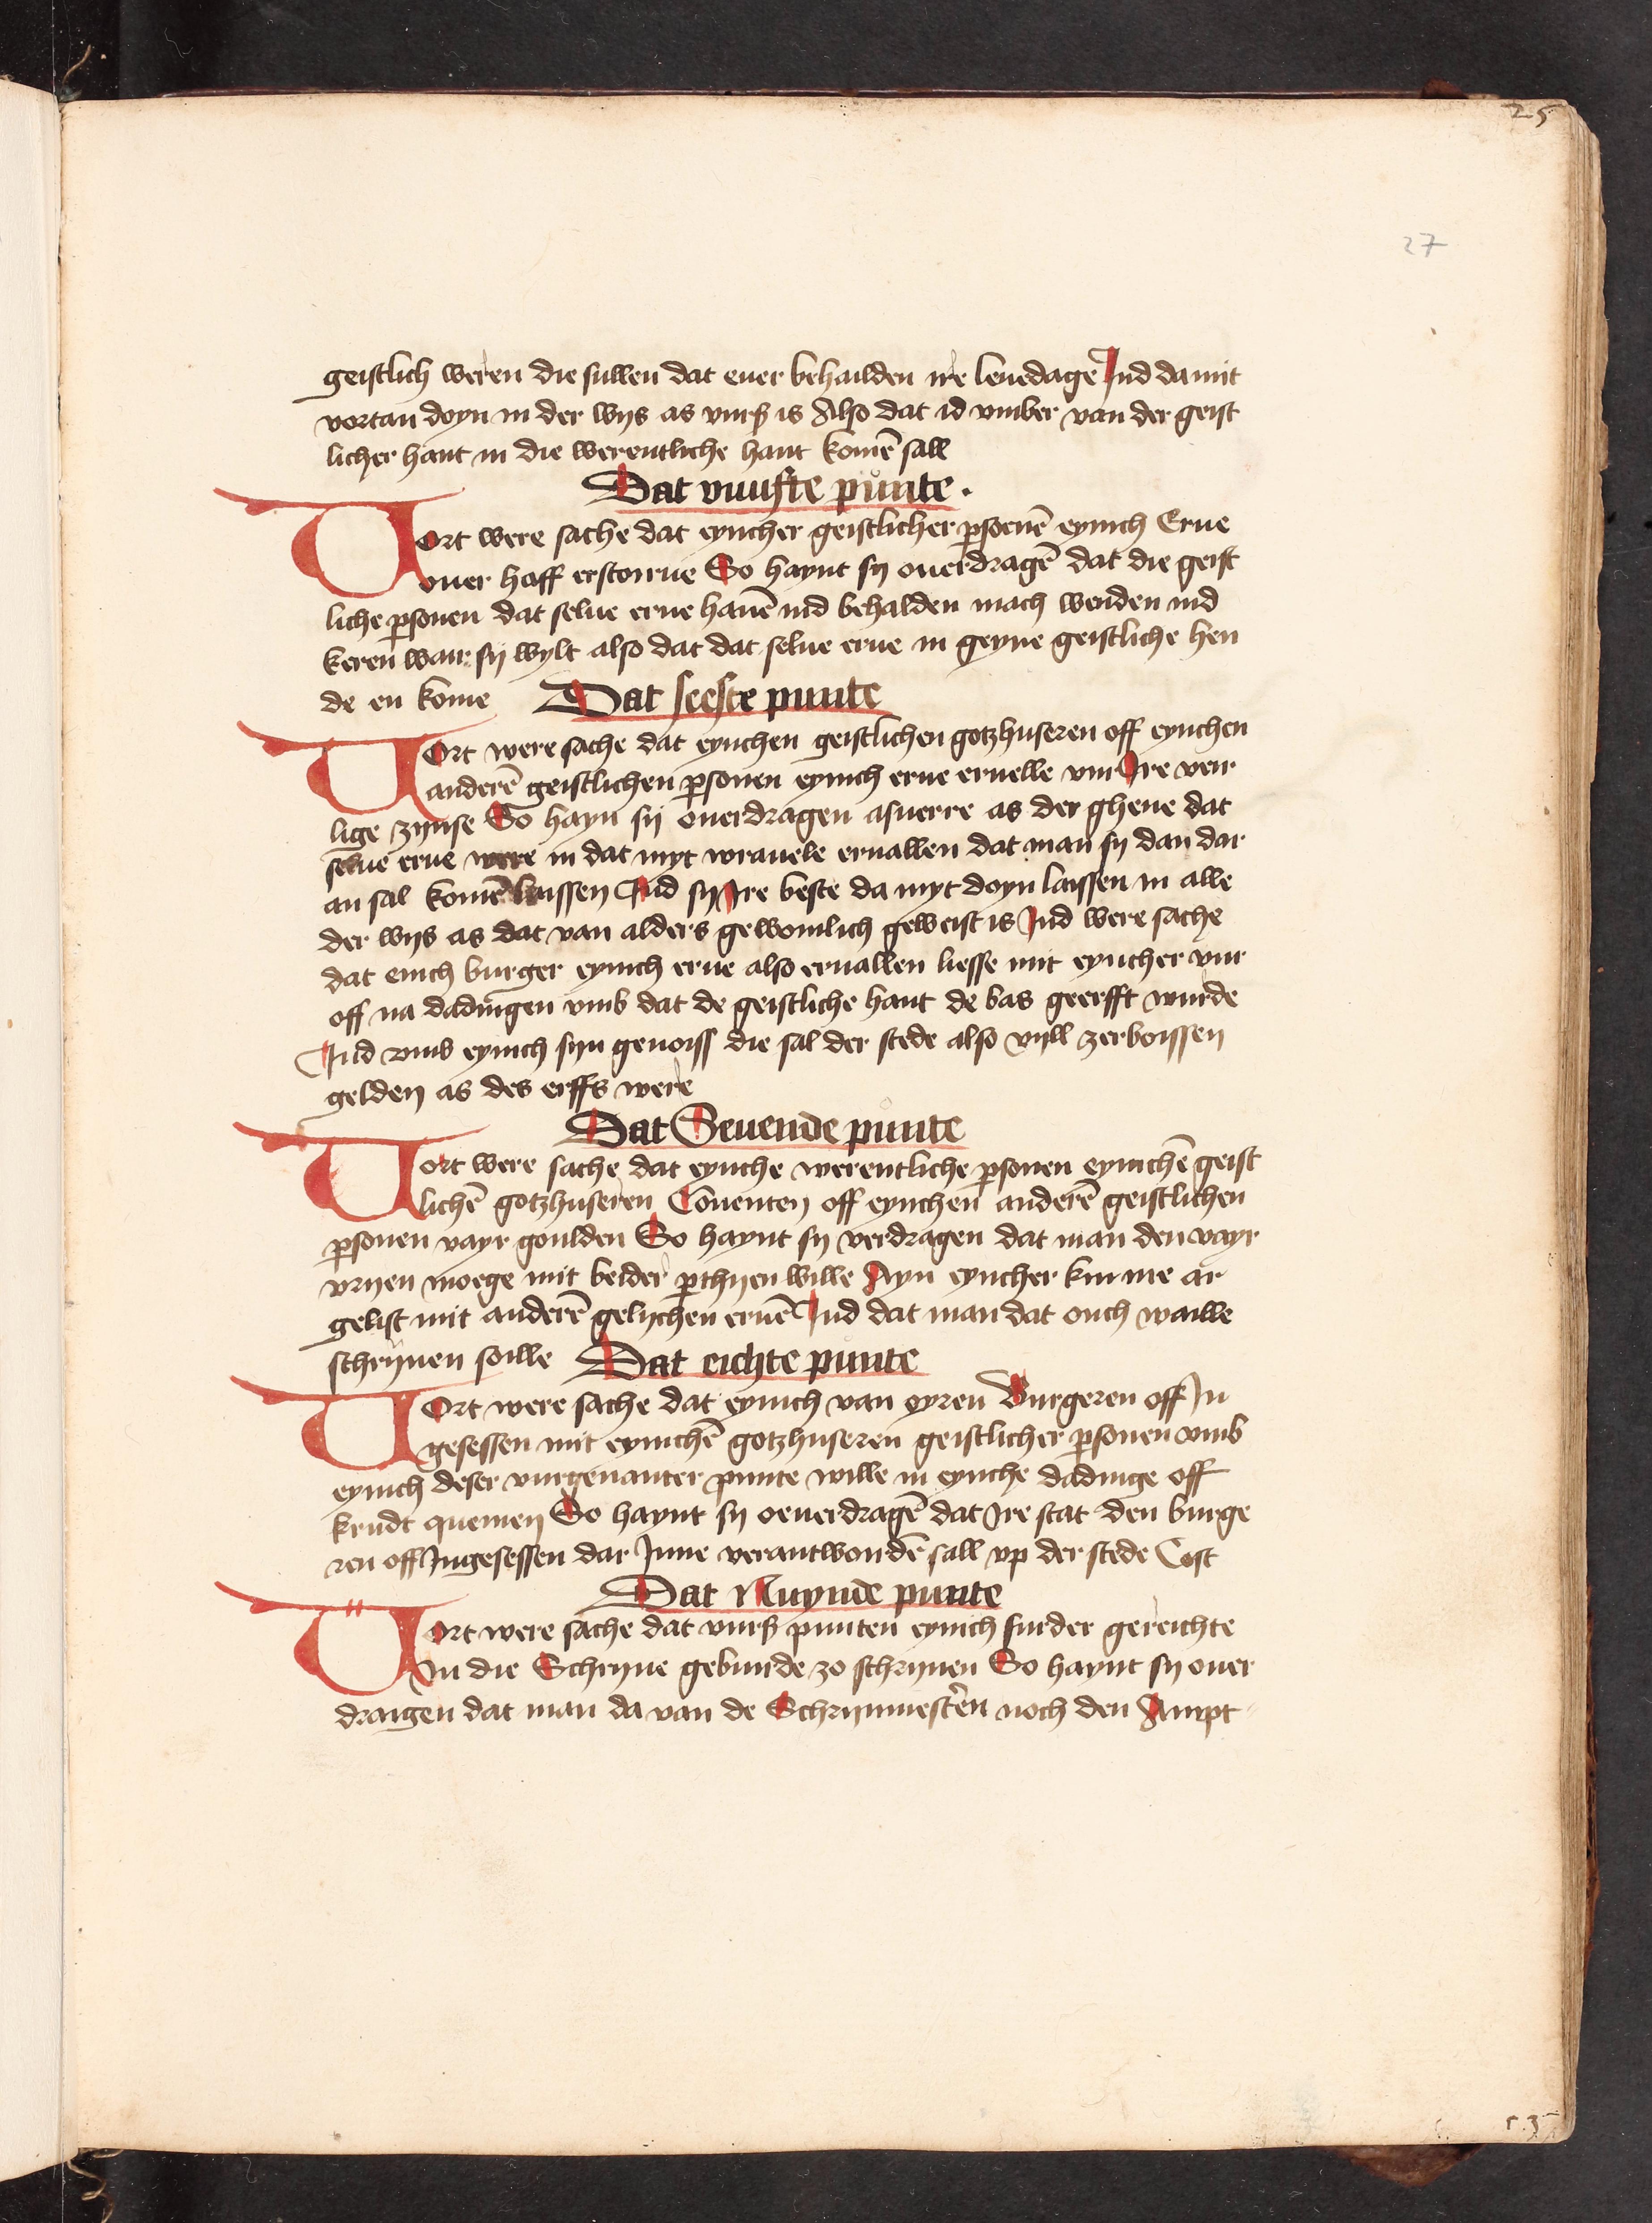 25
27
geistlich weren die sullen dat euer behailden ire leuedage Ind damit
vortan doyn in der wys as vurß is Also dat id vmber van der geist
licher hant in die werentliche hant komē sall
Dat vunfte punte.
Vort were sache dat eyncher geistlicher psoenē eynich Erue
ouer haff erstoirue So haynt sy ouerdragē dat die geist
liche psonen dat selue erue hauē ind behalden mach wenden ind
keren wair sy wylt also dat dat selue erue in geyne geistliche hen
de en kome Dat seeste punte
Vort were sache dat eynchen geistlichen gotzhuseren off eynchen
anderē geistlichen psonen eynich erue eruelle vur Ire veir
lige zynse So hayn sy ouerdragen asuerre as der ghene dat
selue erue were in dat nyt wrauele eruallen dat man sy dan dar
an sal komē laissen Ind sy Ire beste da myt doyn laissen in alle
der wys as dat van alders gewonlich geweist is Ind were sache
dat einch burger eynich erue also eruallen liesse mit eyncher vur
off na dadingen vmb dat de geistliche hant de bas geerfft wurde
Ind vmb eynich syn genoiss die sal der stede also vyll zerboissen
gelden as des erffs were
Dat Seuende punte
Vort were sache dat eynche werentliche psonen eynichē geist
lichē gotzhuseren Conuenten off eynchen anderē geistlichen
psonen vayr goulden So haynt sy verdragen dat man den vayr
vryen moege mit beider pthyen wille Ayn eyncher kunne ar
gelist mit anderē gelychen eruē Ind dat man dat ouch waille
schrynen soille Dat eichte punte
Vort were sache dat eynich van yren Burgeren off In
gesessen mit eynichē gotzhuseren geistlicher psonen vmb
eynich deser vurgenanter punte wille in eynche dadinge off
krudt quemen So haynt sy oeuerdragē dat Ire stat den burge
ren off Ingesessen dar Inne verantwordē sall vp der stede Cost
Dat Nuynde punte
Vort were sache dat vurß punten eynich furder gereichte
In die Schryne geburde zo schrynen So haynt sy ouer
draigen dat man da van de Schrynmesterēn noch den Ampt